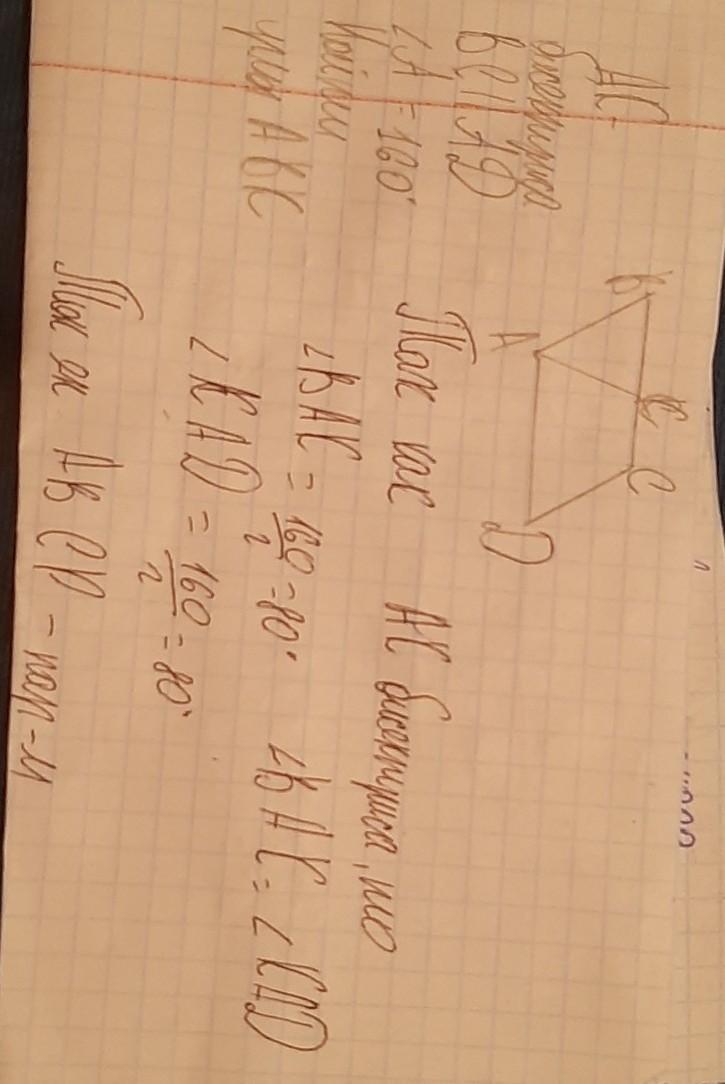 АК -
биссектриса
BC || AD
∠A = 160°
Найти
углы ABK
B
K
C
A
D
Так как AK биссектриса, то
∠BAK = 160/2 = 80° ∠BAK = ∠KAD
∠KAD = 160/2 = 80°
Так как ABCD - пар-м